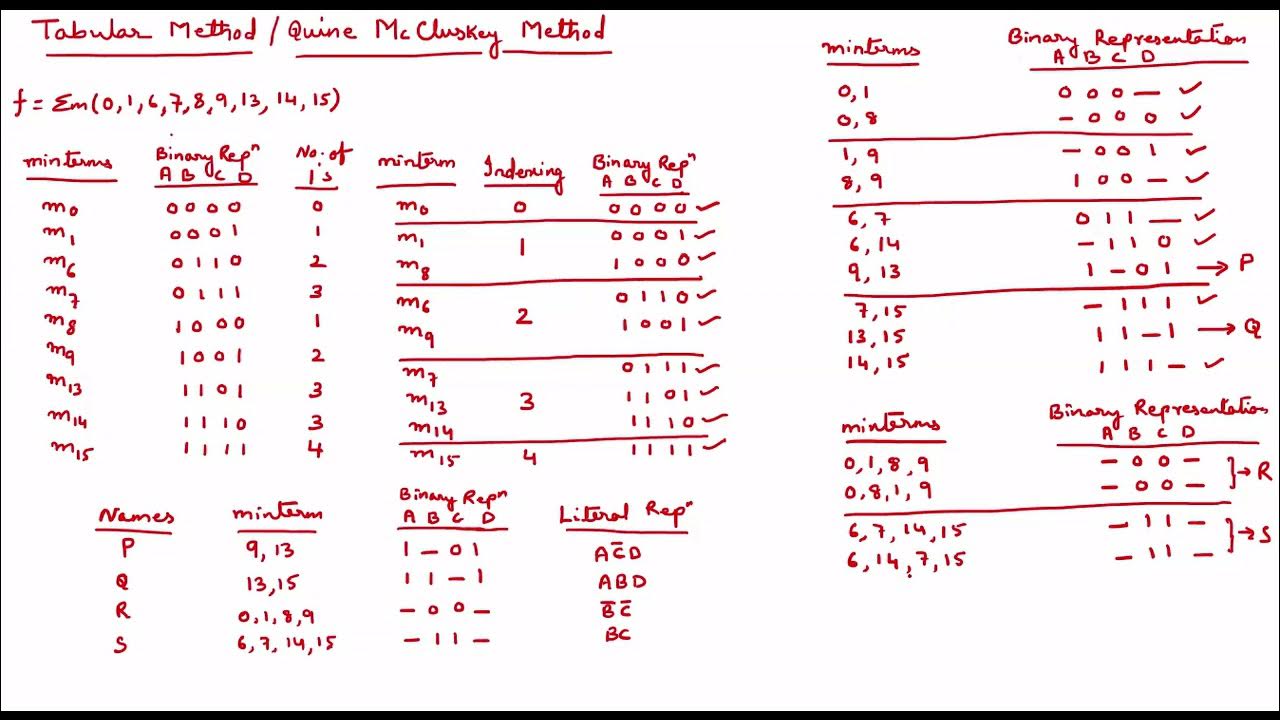 Tabular Method / Quine McCluskey Method
f = Σm(0,1,6,7,8,9,13,14,15)
minterms Binary Repⁿ No. of
A B C D 1's
m₀ 0 0 0 0 0
m₁ 0 0 0 1 1
m₆ 0 1 1 0 2
m₇ 0 1 1 1 3
m₈ 1 0 0 0 1
m₉ 1 0 0 1 2
m₁₃ 1 1 0 1 3
m₁₄ 1 1 1 0 3
m₁₅ 1 1 1 1 4
minterm Indexing Binary Repⁿ
A B C D
m₀ 0 0 0 0 0 ✓
m₁ 1 0 0 0 1 ✓
m₈ 1 0 0 0 ✓
m₆ 2 0 1 1 0 ✓
m₉ 1 0 0 1 ✓
m₇ 3 0 1 1 1 ✓
m₁₃ 1 1 0 1 ✓
m₁₄ 1 1 1 0 ✓
m₁₅ 4 1 1 1 1 ✓
minterms Binary Representation
A B C D
0,1 0 0 0 — ✓
0,8 — 0 0 0 ✓
1,9 — 0 0 1 ✓
8,9 1 0 0 — ✓
6,7 0 1 1 — ✓
6,14 — 1 1 0 ✓
9,13 1 — 0 1 → P
7,15 — 1 1 1 ✓
13,15 1 1 — 1 → Q
14,15 1 1 1 — ✓
minterms Binary Representation
A B C D
0,1,8,9 — 0 0 — → R
0,8,1,9 — 0 0 —
6,7,14,15 — 1 1 — → S
6,14,7,15 — 1 1 —
Names minterm Binary Repⁿ Literal Repⁿ
A B C D
P 9,13 1 — 0 1 AC̅D
Q 13,15 1 1 — 1 ABD
R 0,1,8,9 — 0 0 — B̅C̅
S 6,7,14,15 — 1 1 — BC